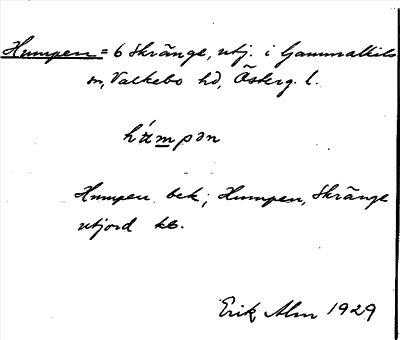 Humpen = 6 Skränge, utj. i Gammalkils
sn, Valkebo hd, Österg. l.
hu̇mpən
Humpen bek; Humpen, Skränge
utjord kb.
Erik Alm 1929